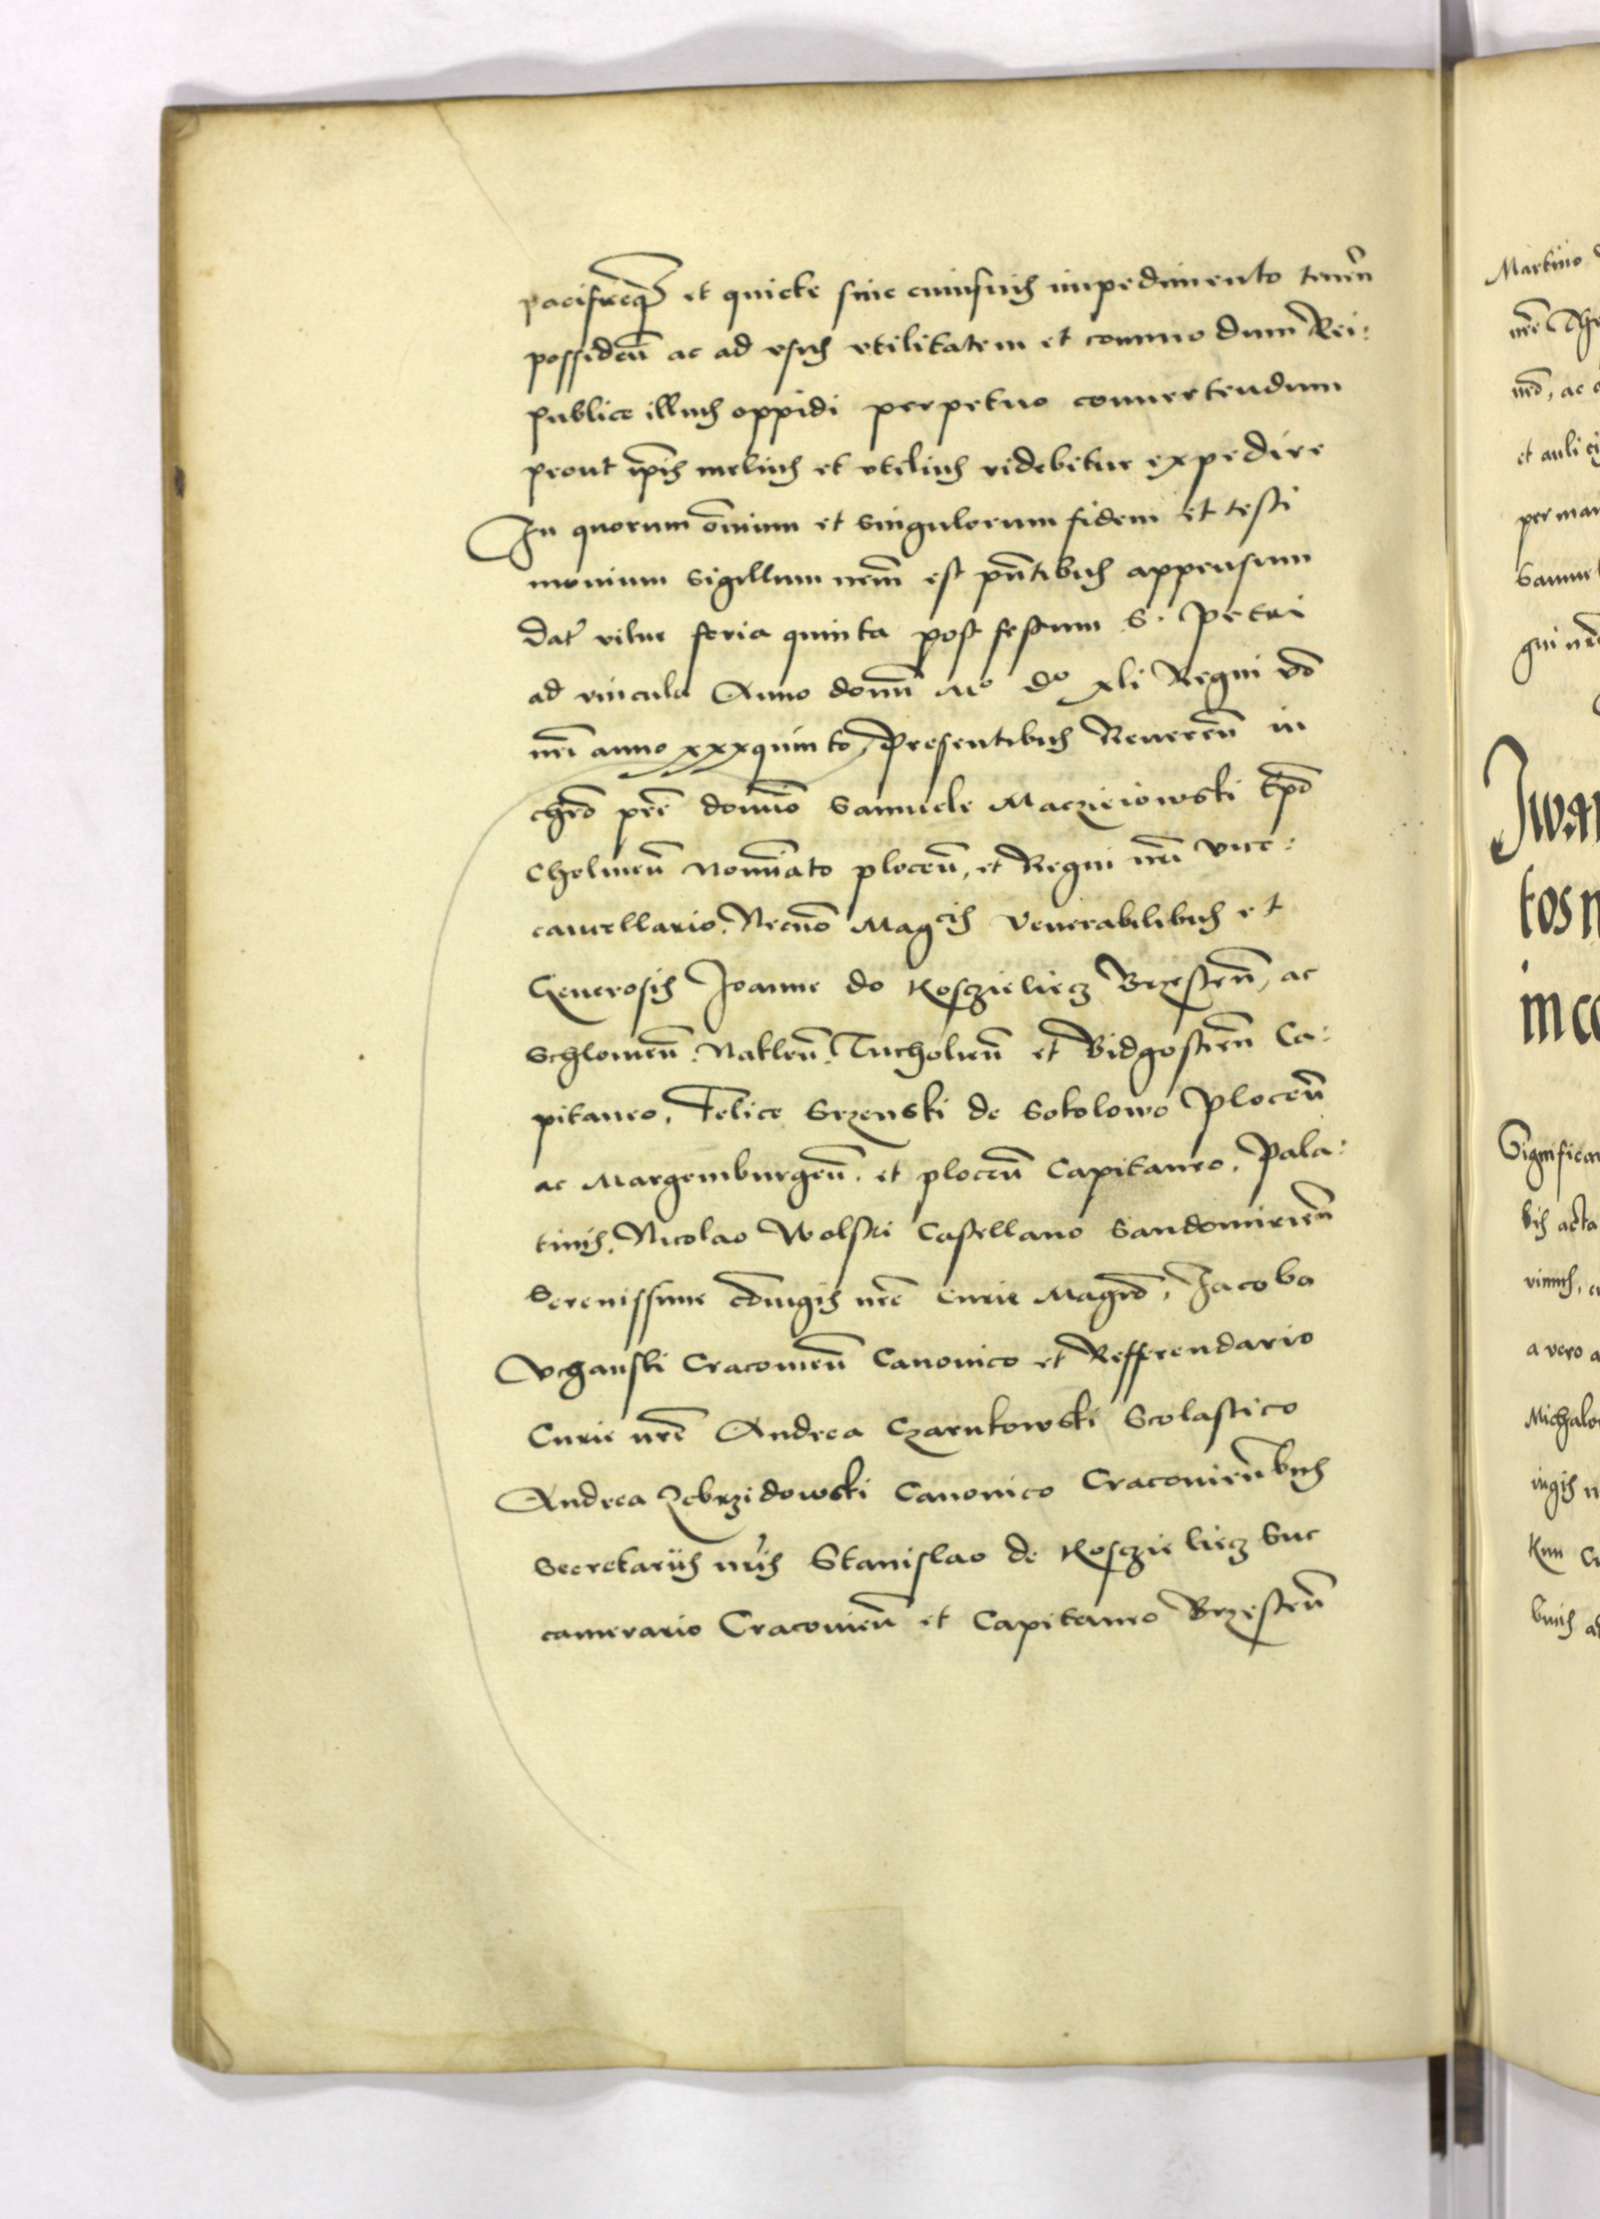 pacificeq̃ et quiete sine cuiusuis impedimento teneñ
possideñ ac ad usus utilitatem et commodum Rei:
publice illius oppidi perpetuo conuertendum
prout ip̃is melius et utilius videbitur expedire
In quorum om̃ium et singulorum fidem et testi
monium sigillum nr̃m est pñtibus appensum
Dat̃ vilne feria quinta post festum S. Petri
ad vincula Anno domĩ Mº Dº xli Regni võ
nr̃i anno xxxquinto, Presentibus Reuereñ in
chr̃o pr̃e domĩo Samuele Maczieiowski Ep̃o
Cholmeñ Nomĩato ploceñ, et Regni nr̃i vice:
cancellario. Necnõ Magcis Venerabilibus et
Generosis Joanne de Kosczieliecz Brzesteñ, ac
Schloneñ. Nakleñ. Tucholieñ et Bidgostieñ Ca:
pitaneo. Felice Srzenski de Sokolowo Ploceñ
ac Margemburgeñ. et ploceñ Capitaneo. Pala:
tinis. Nicolao Wolski Castellano Sandomirieñ
Serenissime cõiugis nr̃e Curie Magr̃o. Jacobo
Vchanski Cracouieñ Canonico et Refferendario
Curie nr̃e Andrea Czarnkowski Scolastico
Andrea Zebrzidowski Canonico Cracovieñbus
Secretariis nr̃is Stanislao de Kosczieliecz Suc
camerario Cracouieñ et Capitaneo Brzesteñ
Martino
nr̃e
nr̃o, ac
et aulici
per man
Samuel
gni nr̃i
Iwan
tos n
in co
Significa
bis acta
a vero a
Michalo
iugis n